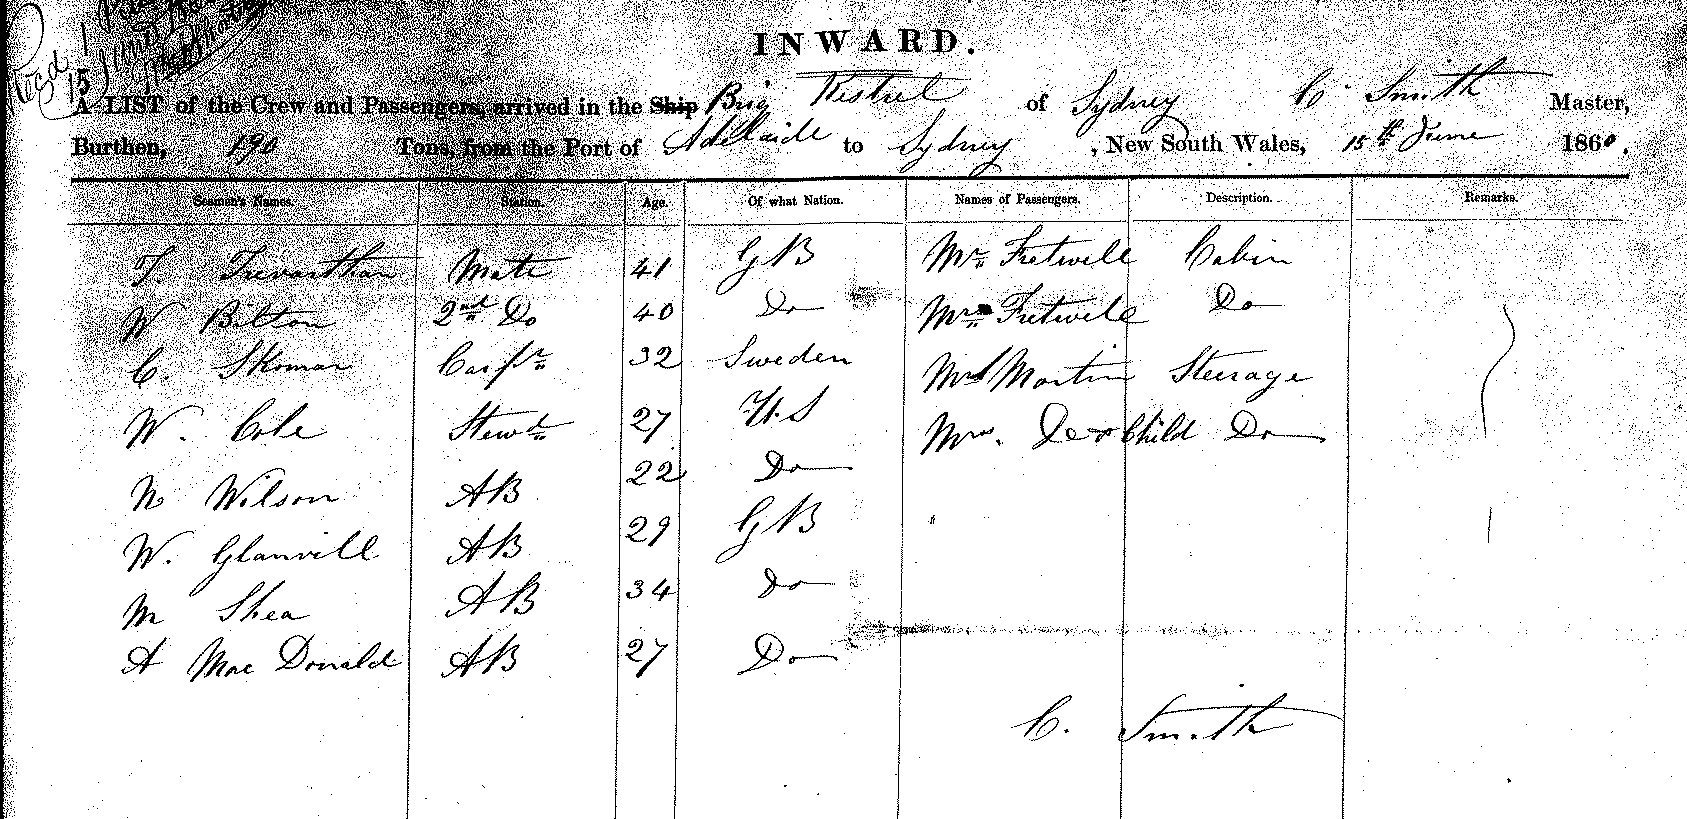 Recd
15 June
INWARD.
A LIST of the Crew and Passengers, arrived in the Ship Brig Kestrel of Sydney C. Smith Master,
Burthen, 190 Tons, from the Port of Adelaide to Sydney, New South Wales, 15th June 1860.
Seamen's Names. Station. Age. Of what Nation. Names of Passengers. Description. Remarks.
T. Trevarthan Mate 41 GB Mr Fretwell Cabin
W Bilton 2nd Do 40 Do Mrs Fretwell Do
C. Skoman Carptr 32 Sweden Mrs Martin Steerage
W. Cole Stewd 27 U.S Mrs. Do + Child Do
N Wilson AB 22 Do
W. Glanvill AB 29 GB
M Shea AB 34 Do
A Mac Donald AB 27 Do
C. Smith